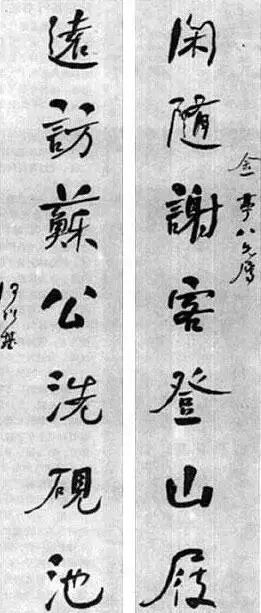 金亭八兄屬
閑隨謝客登山屐
遠訪蘇公洗硯池
何紹基